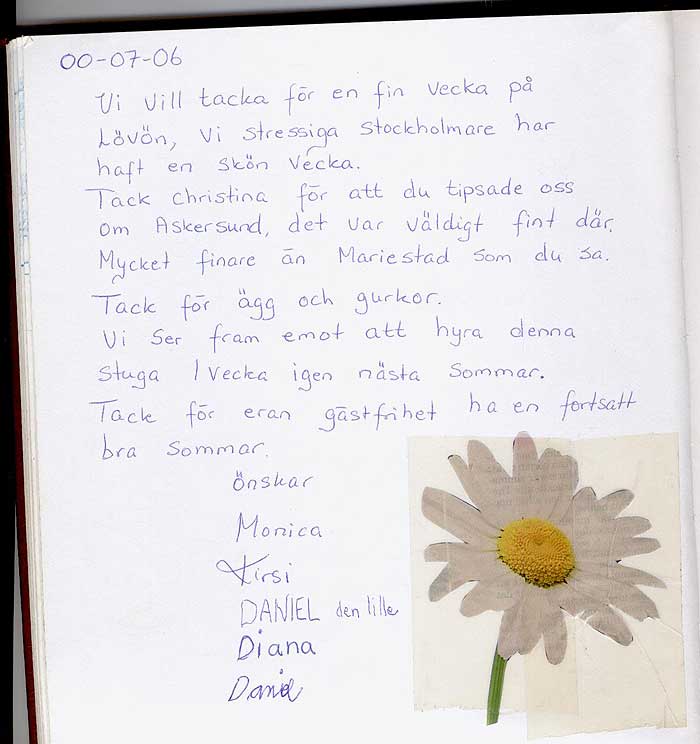 00-07-06
Vi vill tacka för en fin vecka på
Lövön, vi stressiga stockholmare har
haft en skön vecka.
Tack christina för att du tipsade oss
om Askersund, det var väldigt fint där.
Mycket finare än Mariestad som du sa.
Tack för ägg och gurkor.
Vi ser fram emot att hyra denna
stuga 1 vecka igen nästa sommar.
Tack för eran gästfrihet ha en fortsatt
bra sommar.
önskar
Monica
Kirsi
DANIEL den lille
Diana